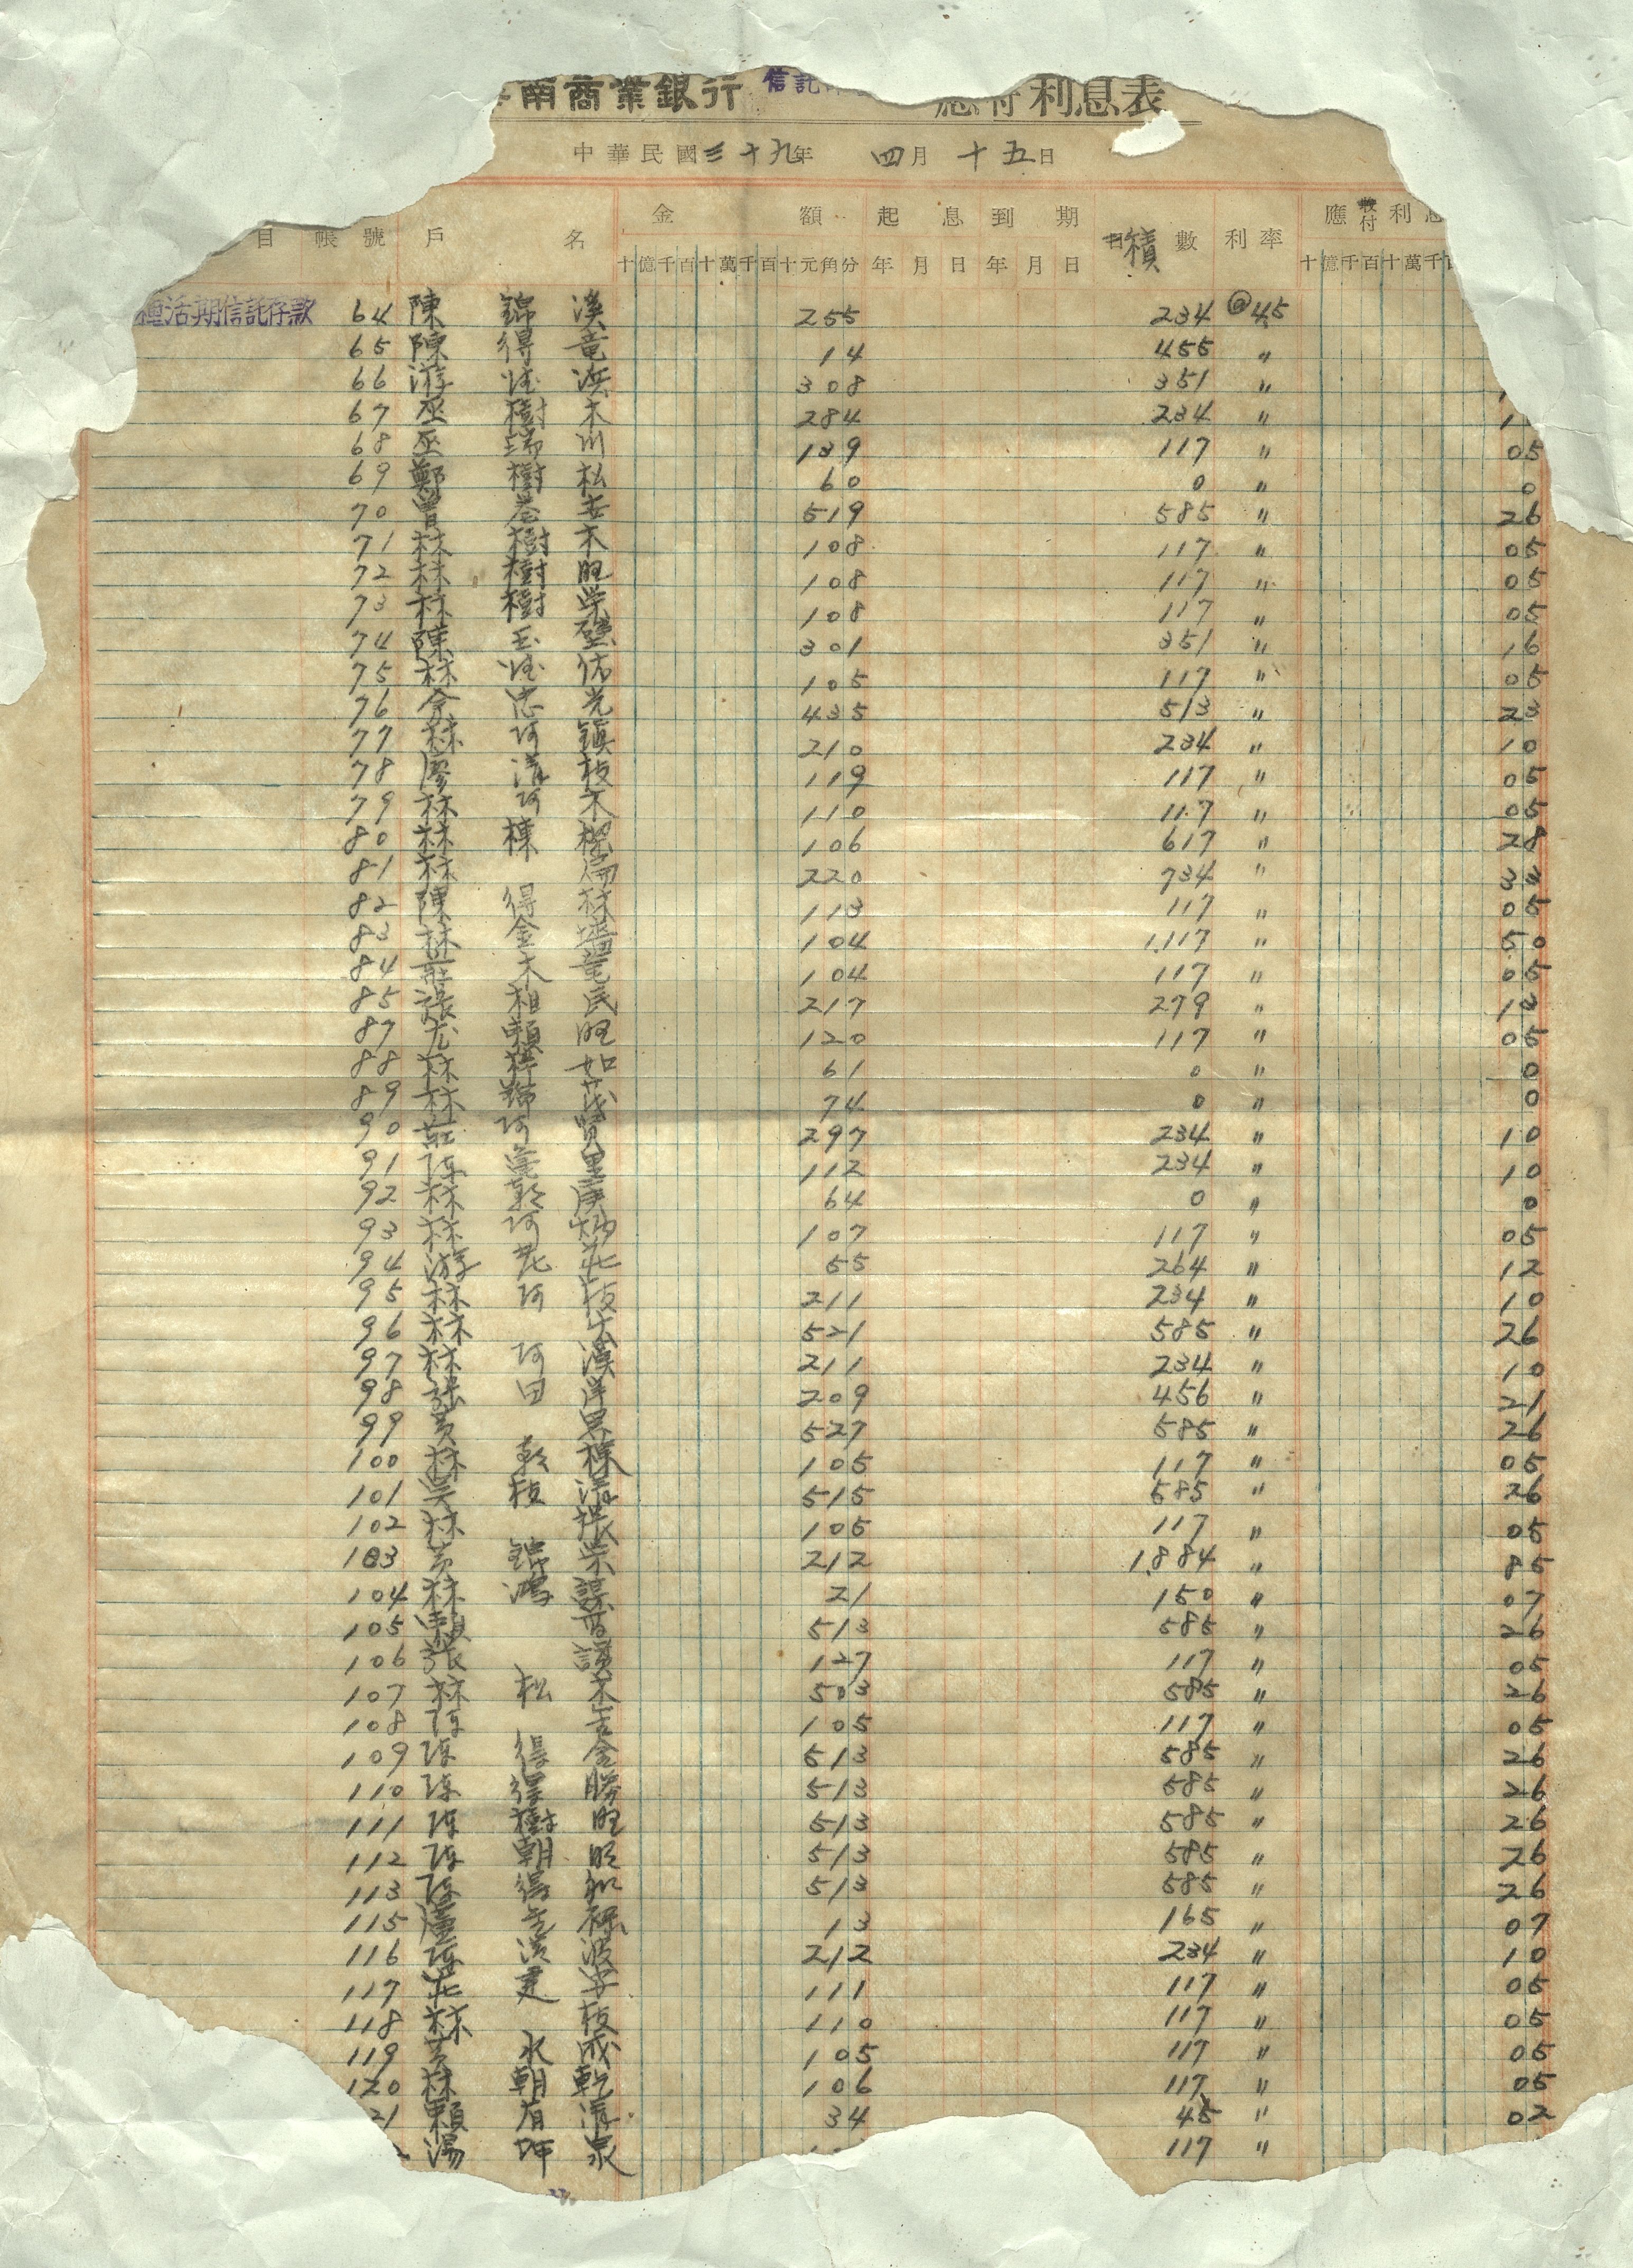 南商業銀行 信託 應付利息表
中華民國三十九年 四月十五日
目 帳號 戶名 金額 起息 到期 積數 利率 應付利息
十億千百十萬千百十元角分 年月日 年月日 十億千百十萬千
種活期信託存款 64 陳錦溪 255 234 @45
65 陳得竜 14 455 〃
66 游 308 351 〃
67 巫樹木 284 234 〃 1
68 巫瑞川 139 117 〃 05
69 鄭樹松 60 0 〃 0
70 曾 519 585 〃 26
71 林樹木 108 117 〃 05
72 林樹旺 108 117 〃 05
73 林樹柴 108 117 〃 05
74 陳玉璧 301 351 〃 16
75 林 105 117 〃 05
76 余忠光 435 513 〃 23
77 林阿鎮 210 234 〃 10
78 廖清枝 119 117 〃 05
79 林阿木 110 117 〃 05
80 林棟 106 617 〃 28
81 林 220 734 〃 33
82 陳得林 113 117 〃 05
83 林金 104 1,117 〃 50
84 莊木竜 104 117 〃 05
85 張相民 217 279 〃 13
87 尤賴旺 120 117 〃 05
88 林 如 61 0 〃 0
89 林錦茂 74 0 〃 0
90 莊阿賢 297 234 〃 10
91 陳 里 112 234 〃 10
92 林乾 64 0 〃 0
93 林阿 107 117 〃 05
94 游 55 264 〃 12
95 林阿枝 211 234 〃 10
96 林 521 585 〃 26
97 林阿溪 211 234 〃 10
98 張田洋 209 456 〃 21
99 黃 527 585 〃 26
100 林乾祿 105 117 〃 05
101 吳枝清 515 585 〃 26
102 林 105 117 〃 05
103 黃錦榮 212 1,884 〃 85
104 林鴻謀 21 150 〃 07
105 賴 513 585 〃 26
106 張 127 117 〃 05
107 林松木 503 585 〃 26
108 陳吉 105 117 〃 05
109 陳得金 513 585 〃 26
110 陳得勝 513 585 〃 26
111 陳樹旺 513 585 〃 26
112 陳朝旺 513 585 〃 26
113 陳得和 513 585 〃 26
115 盧 祿 13 165 〃 07
116 陳 波 212 234 〃 10
117 莊建 111 117 〃 05
118 林枝 110 117 〃 05
119 黃水成 105 117 〃 05
120 林朝乾 106 117 〃 05
21 賴有清 34 45 〃 02
湯坤泉 117 〃